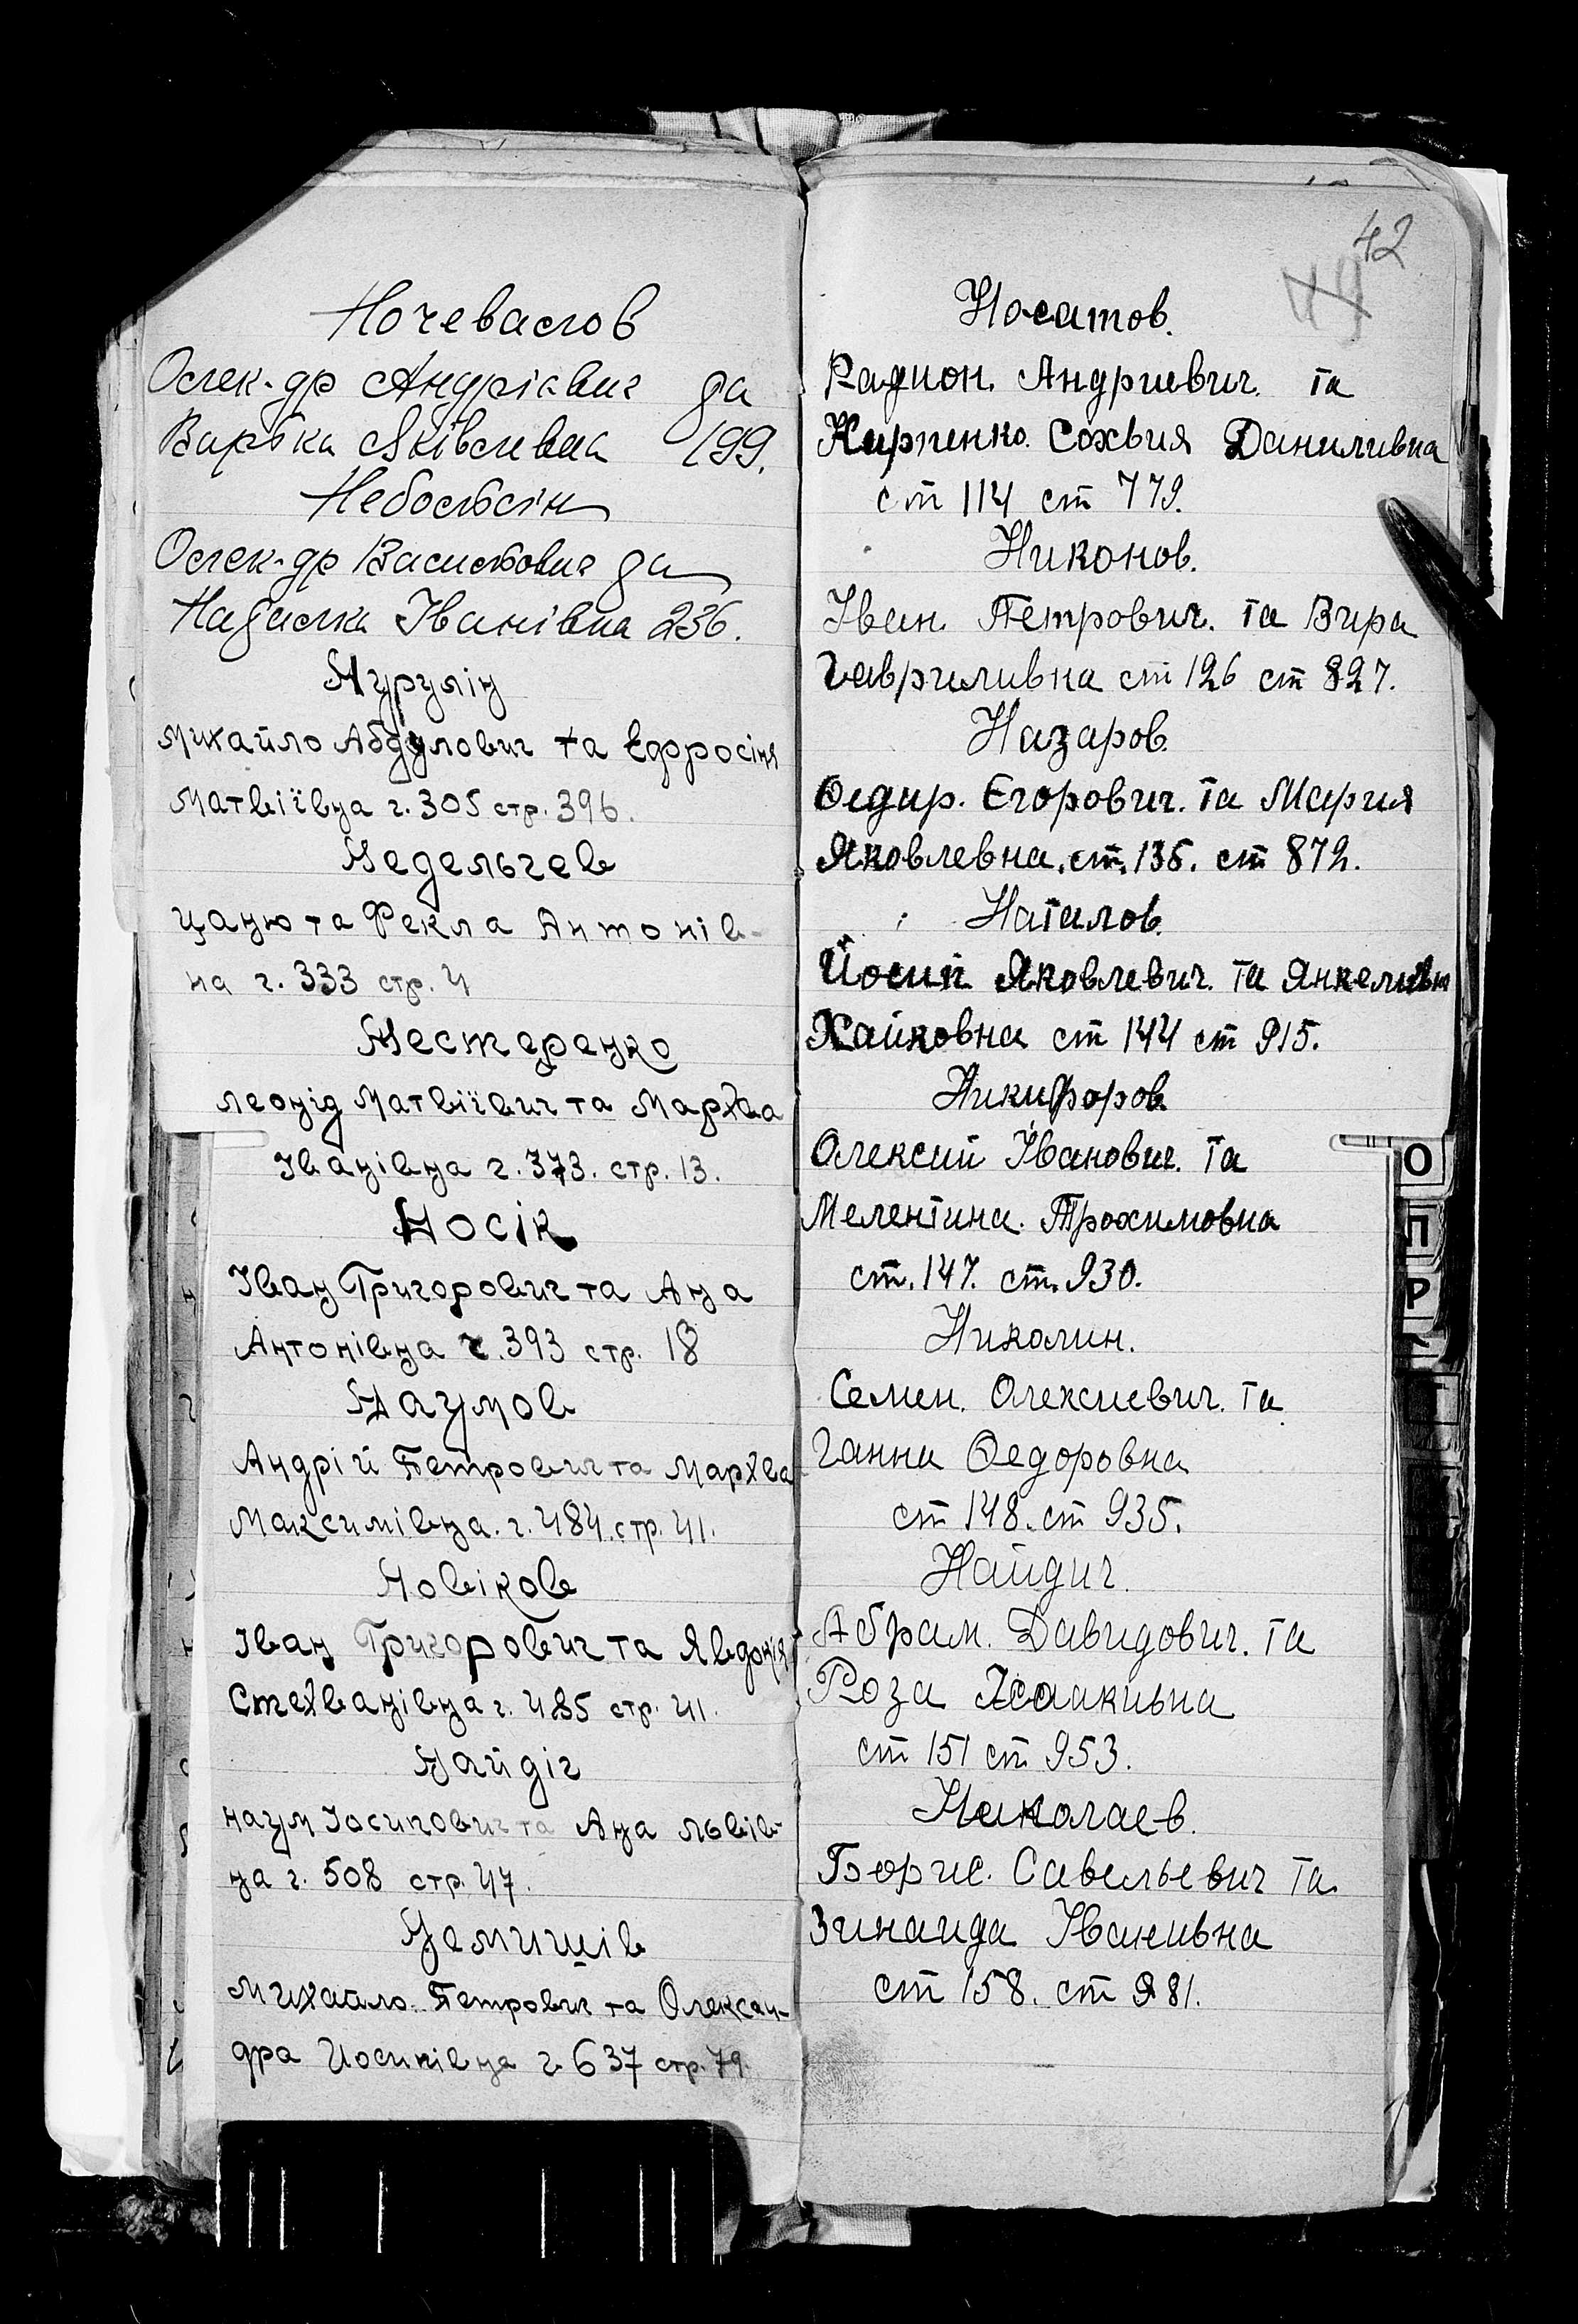 Ночевалов
Олек-др Андрієвич да
Варбка Яківлевна 199.
Небольсін
Олек-др Васильович да
Надаыка Іванівна 236.
Нурулін
Михайло Абдулович та Ефросіня
Матвіївна г. 305 стр. 396.
Недельчев
Цаню та Фекла Антонів-
на г. 333 стр. 4
Нестеренко
Леонід Матвіївич та Мархва
Іванівна г. 373. стр. 13.
Носік
Іван Григорович та Ана
Антонівна г. 393 стр. 18
Наумов
Андрій Петрович та Мархва
Максимівна. г. 484. стр. 41.
Новіков
Іван Григорович та Явдонія
Стехванівна г. 485 стр. 41.
Найдіг
Наум Іосипович та Ана Львів-
на г. 508 стр. 47.
Немишів
Михайло Петрович та Олексан-
дра Йосипівна г. 637 стр. 79.
42
49
Носатов.
Радион. Андриевич. та
Кирпенко. Сохвия Даниливна
ст 114 ст 779.
Никонов.
Іван Петрович. та Вира
Гавриливна ст 126 ст 827.
Назаров
Федир. Єгорович. та Мария
Яковлевна. ст. 135. ст 872.
Наталов.
Йосип Яковлевич. та Янкеливна
Хайковна ст 144 ст 915.
Никифоров
Олексий Іванович. та
Мелентина. Трохимовна
ст. 147. ст. 930.
Николин.
Семен. Олексиевич. та
Ганна Федоровна
ст 148. ст 935.
Найдич.
Абрам. Давидович. та
Роза Исаакивна
ст 151 ст 953.
Николаев.
Борис. Савельевич та
Зинаида Іванивна
ст 158. ст 981.
О
П
Р
Т